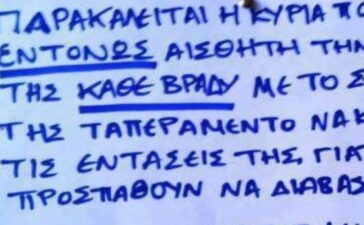 ΠΑΡΑΚΑΛΕΙΤΑΙ Η ΚΥΡΙΑ ΠΟ
ΕΝΤΟΝΩΣ ΑΙΣΘΗΤΗ ΤΗΝ
ΤΗΣ ΚΑΘΕ ΒΡΑΔΥ ΜΕ ΤΟ Σ
ΤΗΣ ΤΑΠΕΡΑΜΕΝΤΟ ΝΑ Κ
ΤΙΣ ΕΝΤΑΣΕΙΣ ΤΗΣ, ΓΙΑ
ΠΡΟΣΠΑΘΟΥΝ ΝΑ ΔΙΑΒΑΣ